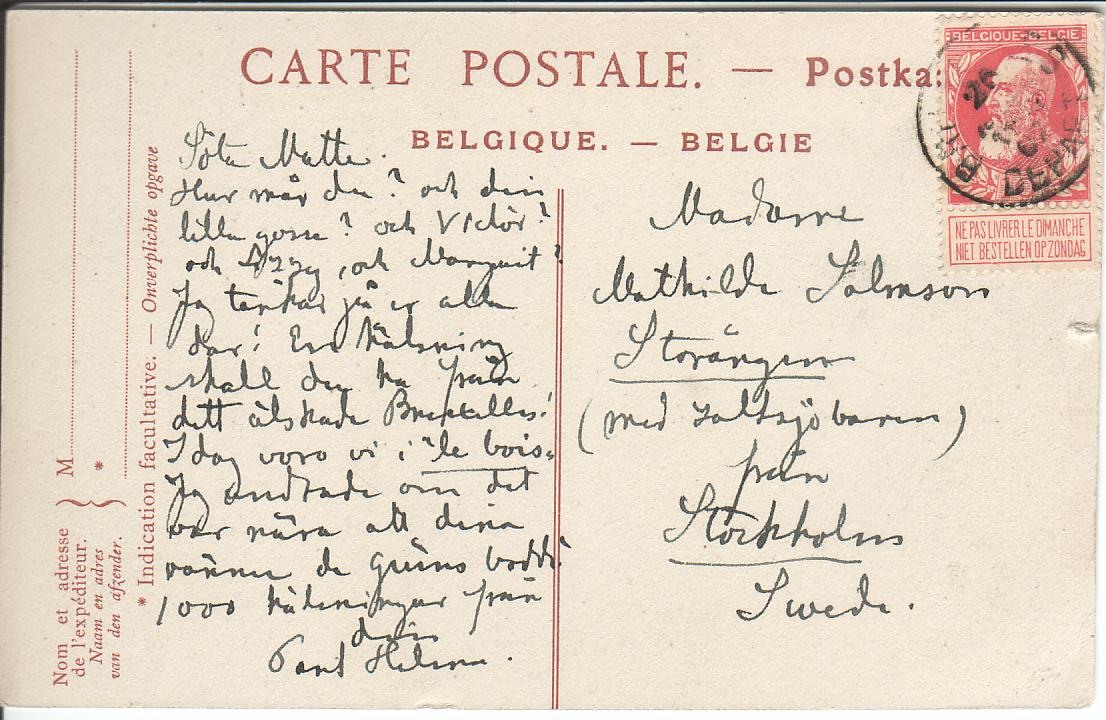 CARTE POSTALE. — Postka
BELGIQUE. — BELGIE
BELGIQUE-BELGIE
NE PAS LIVRER LE DIMANCHE
NIET BESTELLEN OP ZONDAG
Söta Matte.
Hur mår du? och din
lilla gosse? och Victor?
och Azzy, och Margait?
Jag tänker på er alla
där! En hälsning
skall du ha från
ditt älskade Bruxelles!
I dag voro vi i "le bois"
Jag undrade om det
var nära att dina
vänner de Greins bodde?
1000 hälsningar från
din
Tant Helena.
Madame
Mathilda Salmson
Storängen
(med Saltsjöbanan)
från
Stockholm
Swede.
M
*
Nom et adresse
de l'expéditeur.
Naam en adres
van den afzender.
* Indication facultative. — Onverplichte opgave